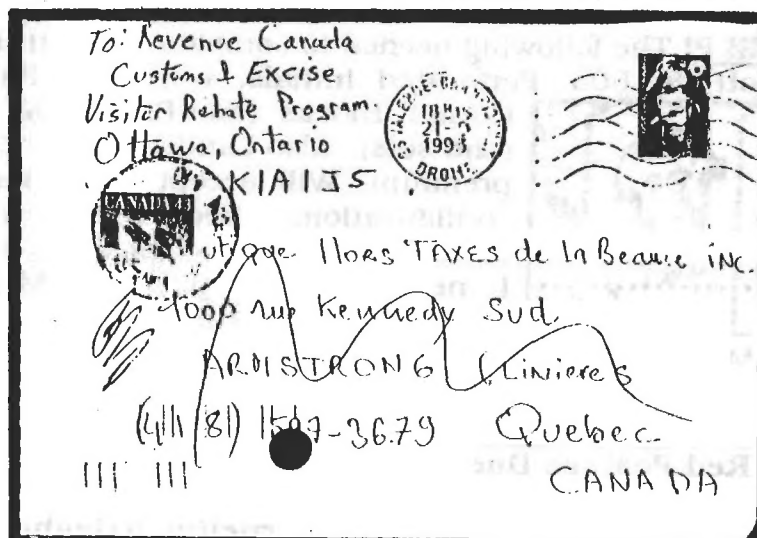 To: Revenue Canada
Customs & Excise
Visitor Rebate Program
Ottawa, Ontario
K1A 1J5
18H15
1993
DROME
CANADA
utique HORS TAXES de la Beauce inc.
1000 rue Kennedy Sud
ARMSTRONG (Liniere
597-3679 Quebec
CANADA
Red Postage Due